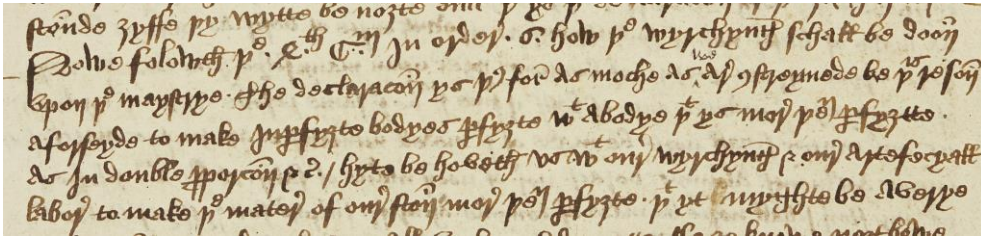 stonde zyffe þy wytte be nozte
Nowe foloweth þe. x.th C.m In order. s. how þe wyrchynth schall be doon
vpon þe maystrye. The declaracon ys þs for As moche As we Ar constreynede be þis reson
aforseyde to make Inperfyzte bodyes perfyzte wt Abodye þt ys mor þen perfyztte.
As In double proporcon &c. / hyte be hoveth vs wt our wyrchynth & our Artefecyall
labor to make þe mater of our ston mor þen perfyzte. þt yt myghte be Averye